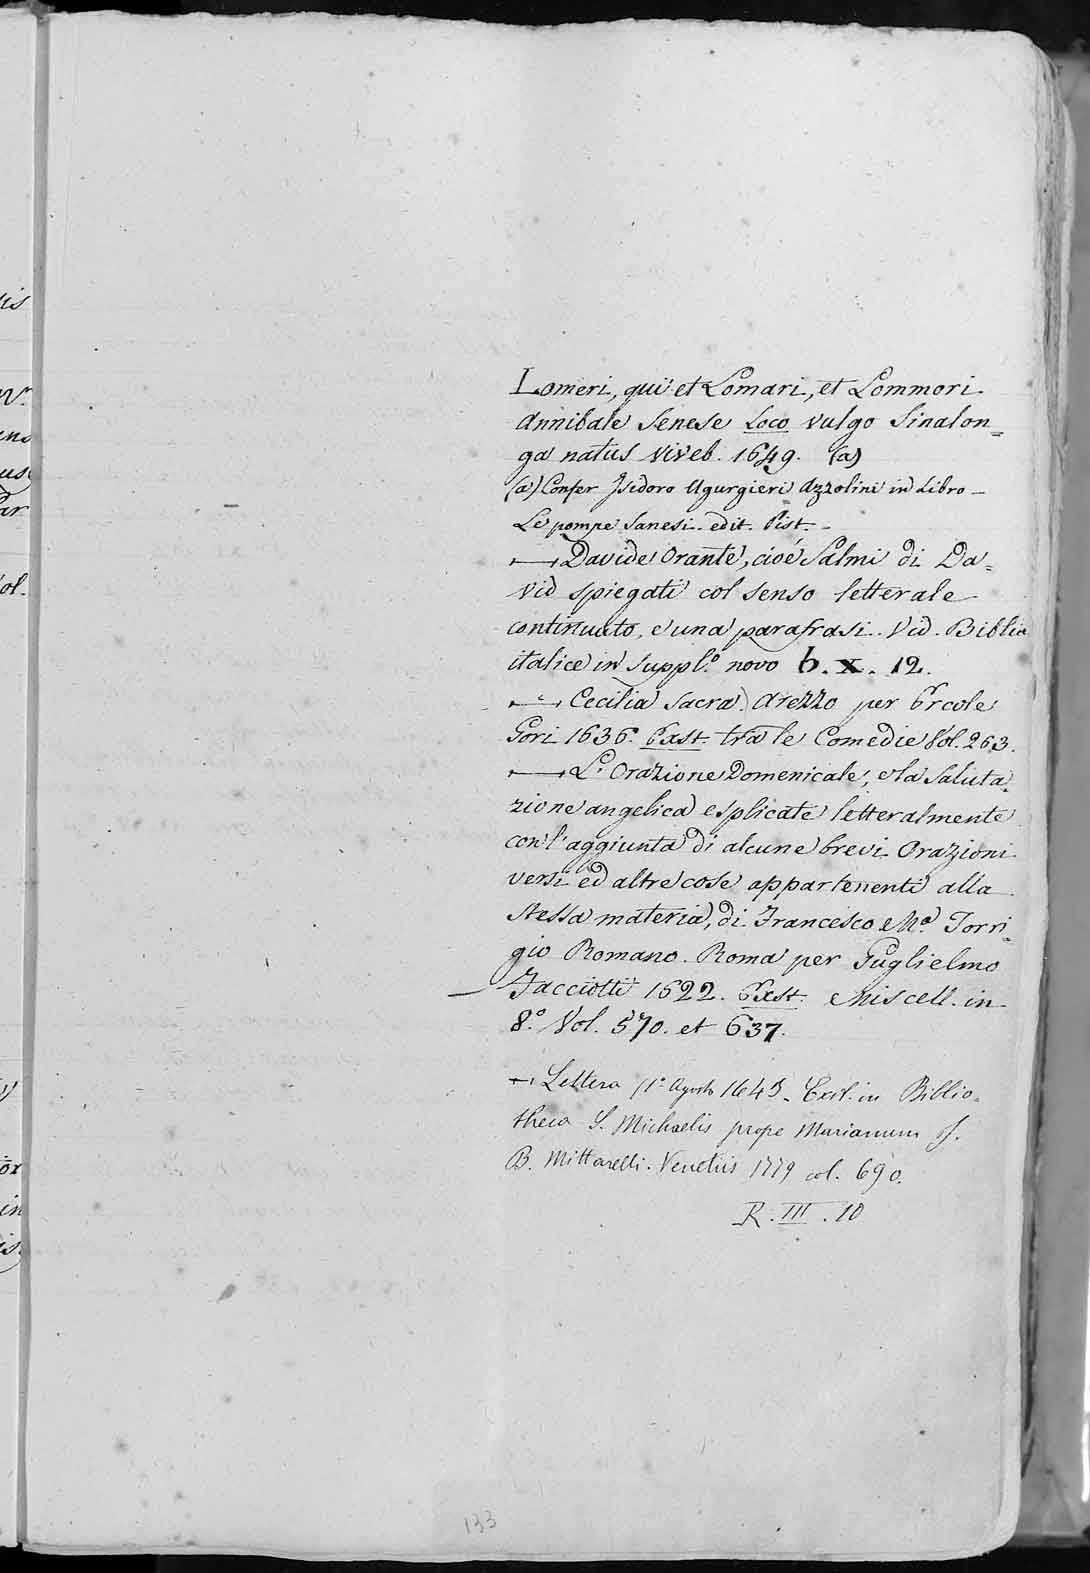 Lomeri, qui et Lomari, et Lommori
Annibale Senese Loco vulgo Sinalon=
ga natus viveb. 1649. (a)
(a) Confer Isidoro Ugurgieri Azzolini in Libro -
Le pompe Sanesi. edit. Pist. -
Davide Orante, cioé Salmi di Da=
vid spiegati col senso letterale
continuato, e una parafrasi. Vid. Biblia
italice in suppl.º novo b. x. 12.
Cecilia Sacra. Arezzo per Ercole
Gori 1636. Exst. tra le Comedie Vol. 263.
L'Orazione Domenicale, e la Saluta=
zione angelica esplicate letteralmente
con l'aggiunta di alcune brevi Orazioni
versi ed altre cose appartenenti alla
stessa materia, di Francesco Mª Torri=
gio Romano. Roma per Guglielmo
Facciotti 1622. Exst. Miscell. in
8.º Vol. 570. et 637.
Lettera (1º Agosto 1645. Exst. in Biblio=
theca S. Michaelis prope Marianum J.
B. Mittarelli. Venetiis 1779 col. 690.
R. III. 10
133